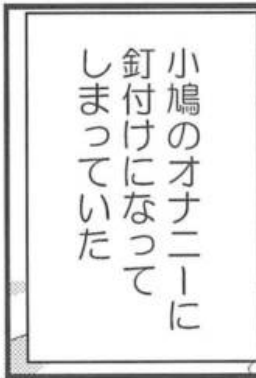 小鳩のオナニーに
釘付けになって
しまっていた